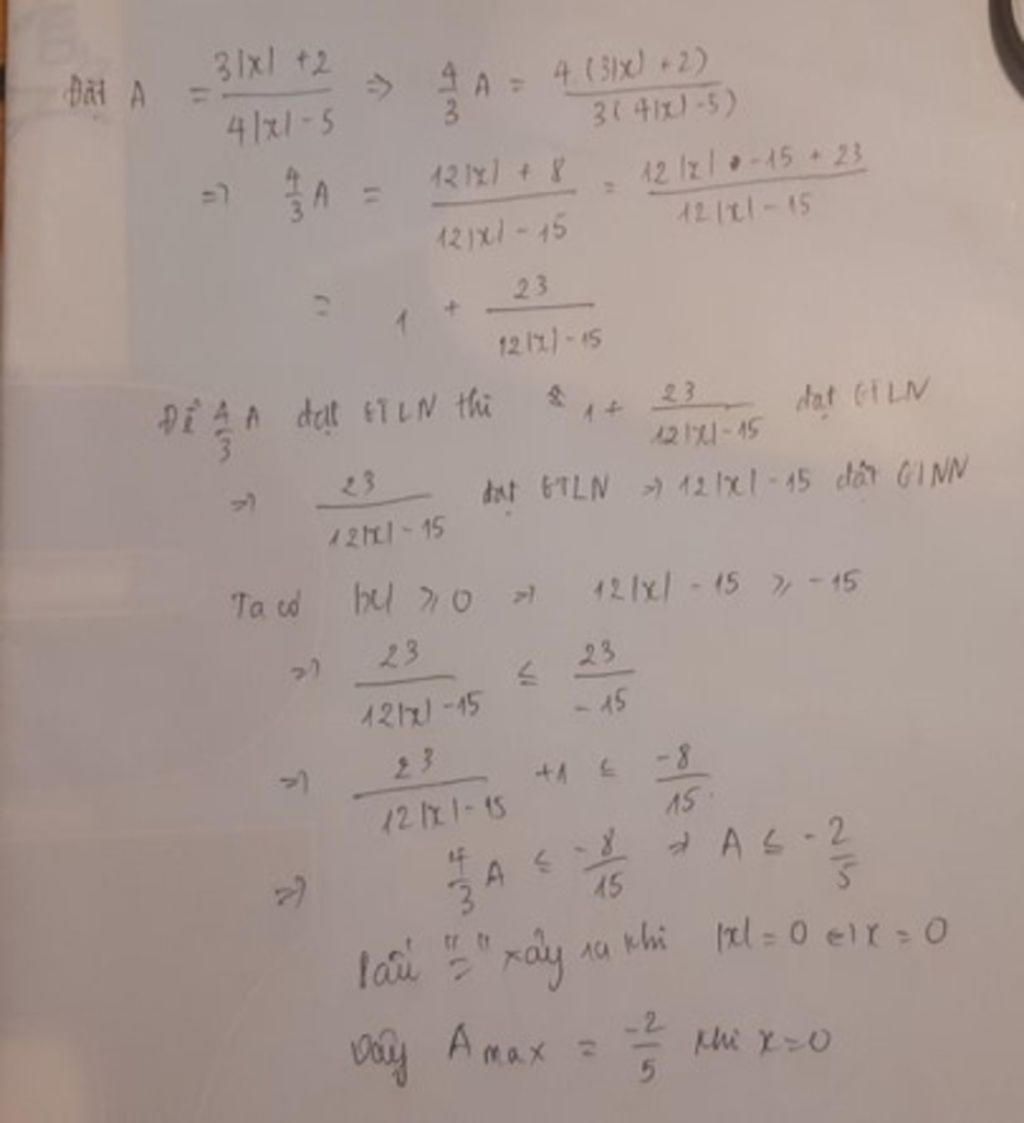 Đặt A = (3|x| + 2)/(4|x| - 5) => 4/3 A = 4(3|x| + 2)/3(4|x| - 5)
=> 4/3 A = (12|x| + 8)/(12|x| - 15) = (12|x| - 15 + 23)/(12|x| - 15)
= 1 + 23/(12|x| - 15)
Để 4/3 A đạt GTLN thì 1 + 23/(12|x| - 15) đạt GTLN
=> 23/(12|x| - 15) đạt GTLN => 12|x| - 15 đạt GTNN
Ta có |x| ⩾ 0 => 12|x| - 15 ⩾ -15
=> 23/(12|x| - 15) ≤ 23/-15
=> 23/(12|x| - 15) + 1 ≤ -8/15
=> 4/3 A ≤ -8/15 => A ≤ -2/5
Dấu "=" xảy ra khi |x| = 0 <=> x = 0
Vậy A max = -2/5 khi x = 0